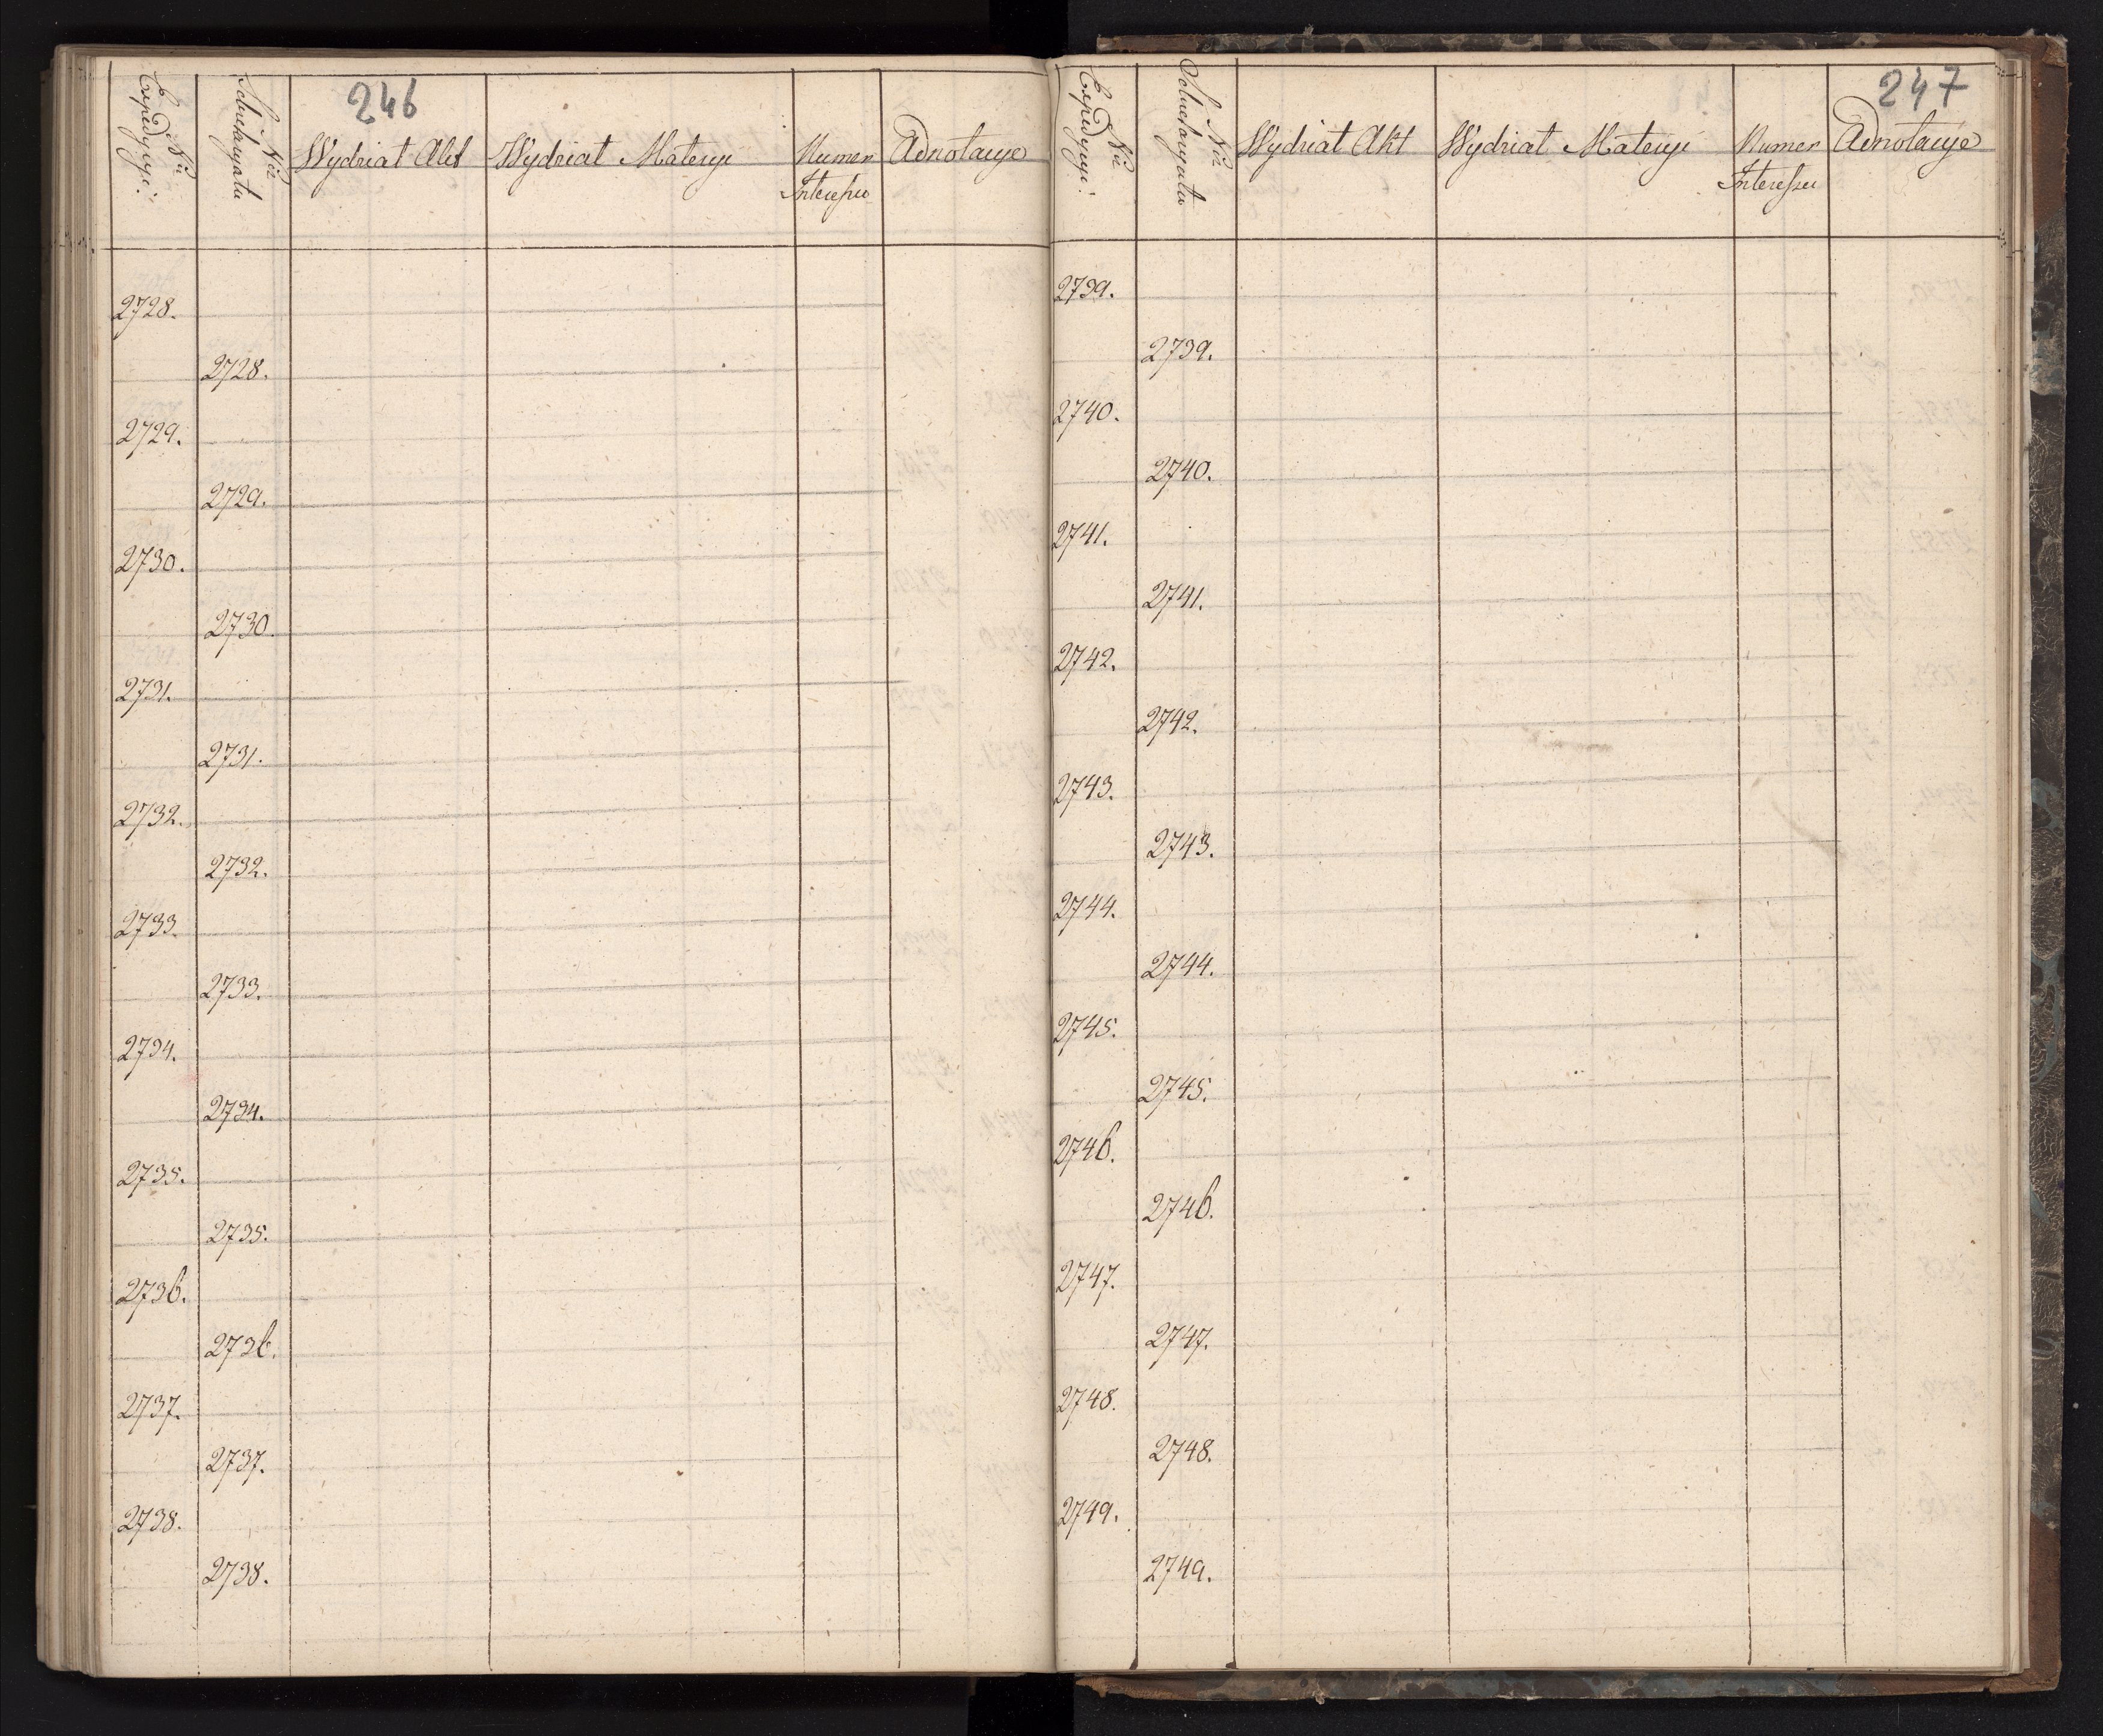 246
Nr Expedycyi:
Nr
Wydział Akt
Wydział Materyi
Numer Interessu
Adnotacye
2728.
2728.
2729.
2729.
2730.
2730.
2731.
2731.
2732.
2732.
2733.
2733.
2734.
2734.
2735.
2735.
2736.
2736.
2737.
2737.
2738.
2738.
247
Nr Expedycyi:
Nr
Wydział Akt
Wydział Materyi
Numer Interessu
Adnotacye
2739.
2739.
2740.
2740.
2741.
2741.
2742.
2742.
2743.
2743.
2744.
2744.
2745.
2745.
2746.
2746.
2747.
2747.
2748.
2748.
2749.
2749.